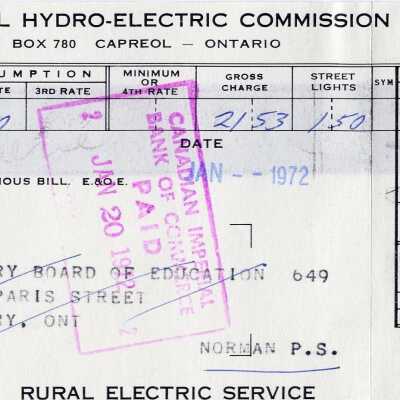 L HYDRO-ELECTRIC COMMISSION
BOX 780 CAPREOL — ONTARIO
UMPTION MINIMUM OR 4TH RATE GROSS CHARGE STREET LIGHTS SYM
TE 3RD RATE
0 21 53 1 50
DATE
JAN -- 1972
IOUS BILL. E.&O.E.
CANADIAN IMPERIAL
BANK OF COMMERCE
PAID
JAN 20 197
2 2
RY BOARD OF EDUCATION 649
PARIS STREET
RY, ONT
NORMAN P.S.
RURAL ELECTRIC SERVICE